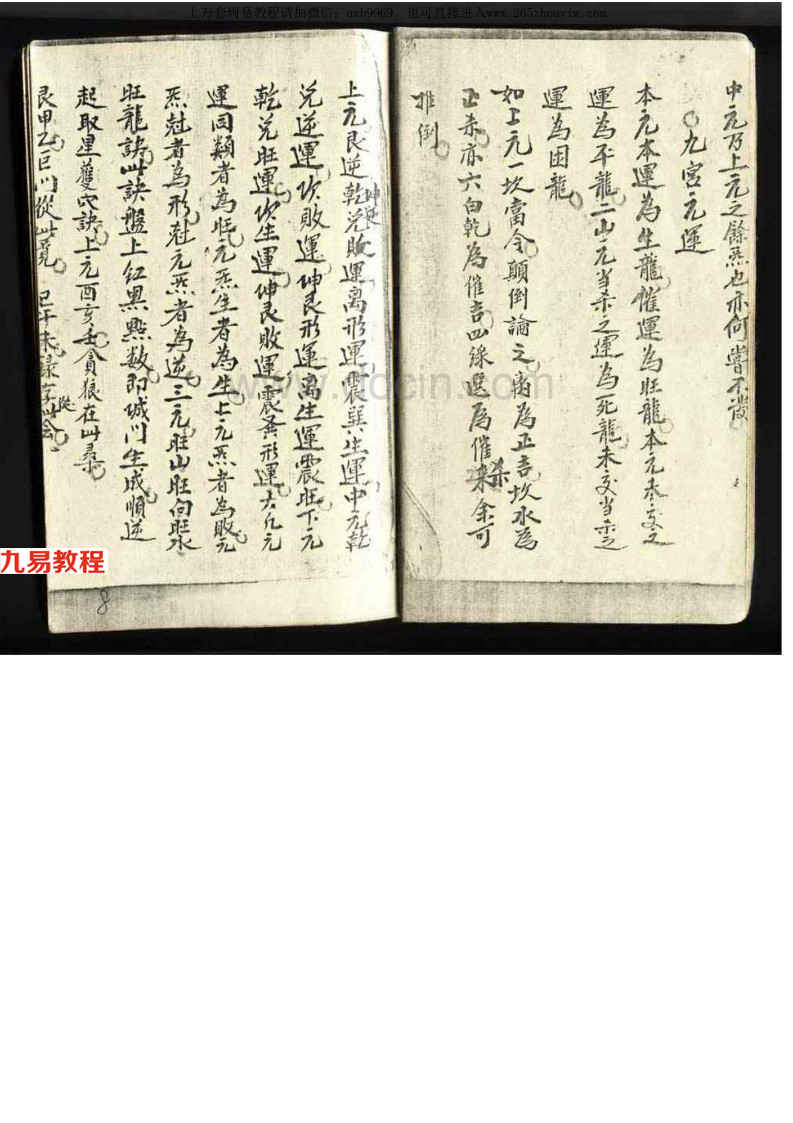 中元乃上元之餘炁也亦何嘗不設
九宮元運
本元本運為生龍催運為旺龍本元未交之
運為平龍二山元当杀之運為死龍未交当杀之
運為困龍
如上元一坎當令顛倒論之离為正吉坎水為
正杀亦六白乾為催吉四綠巽為催杀余可
推倒
上元艮逆乾兑敗運离形運震巽生運中元乾
坤艮
兑逆運坎敗運坤艮形運离生運震旺下元
乾兑旺運坎生運坤艮敗運震巽形運大凢元
運同類者為旺元炁生者為生上元炁者為敗元
炁尅者為形尅元炁者為逆三元旺山旺向旺水
旺龍訣此訣盤上紅黑點数即城门生成順逆
起取星雙穴訣上元酉亥壬貪狼在此尋
艮甲乙巳门從此覓 巳午未
九易教程
8
www.docin.com